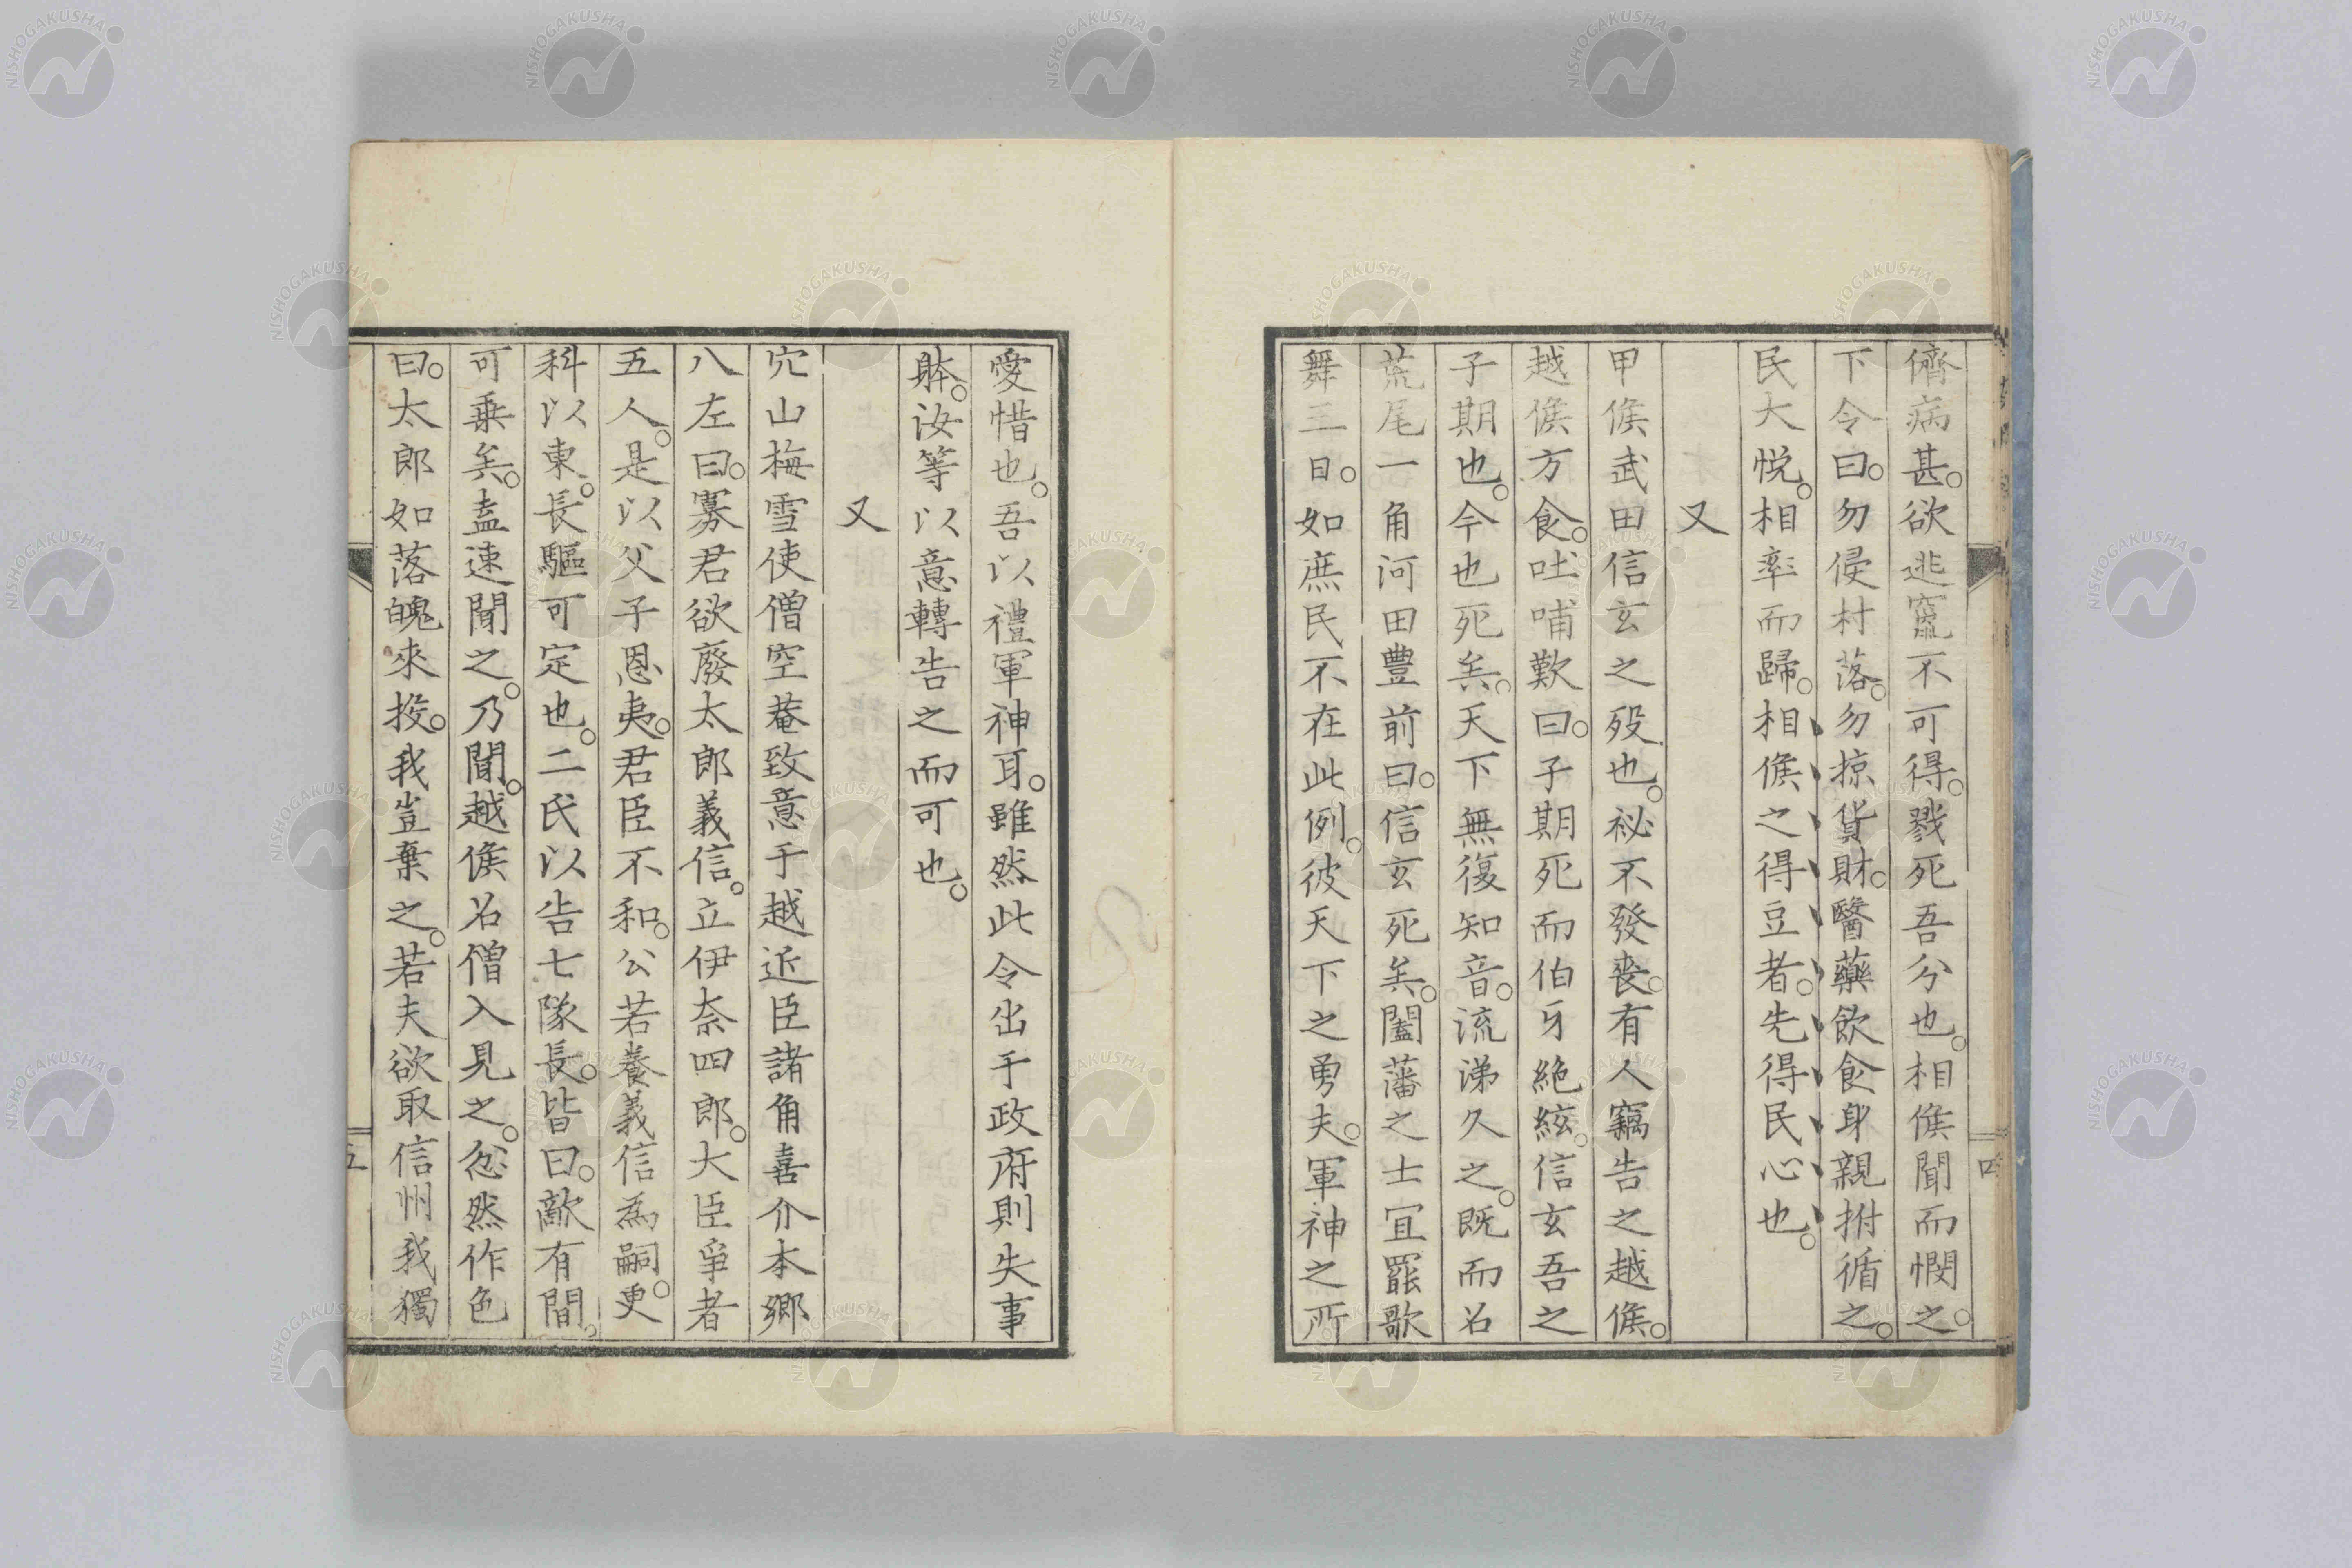 儕病甚。欲逃竄不可得。戮死吾分也。相侯聞而憫之。
下令曰。勿侵村落。勿掠貨財。醫藥飲食身親拊循之。
民大悦。相率而歸。相侯之得豆者。先得民心也。
又
甲侯武田信玄之歿也。祕不發喪。有人竊告之越侯。
越侯方食。吐哺歎曰。子期死而伯牙絶絃。信玄吾之
子期也。今也死矣。天下無復知音。流涕久之。既而召
荒尾一角河田豊前曰。信玄死矣。闔藩之士宜罷歌
舞三日。如庶民不在此例。彼天下之勇夫。軍神之所
愛惜也。吾以禮軍神耳。雖然此令出于政府則失事
躰。汝等以意轉告之而可也。
又
穴山梅雪使僧空菴致意于越近臣諸角喜介本郷
八左曰。寡君欲廢太郎義信。立伊奈四郎。大臣爭者
五人。是以父子恩夷。君臣不和。公若養義信為嗣。更
科以東。長驅可定也。二氏以告七隊長。皆曰。敵有間。
可乗矣。盍速聞之。乃聞。越侯召僧入見之。忽然作色
曰。太郎如落魄來投。我豈棄之。若夫欲取信州我獨
NISHOGAKUSHA